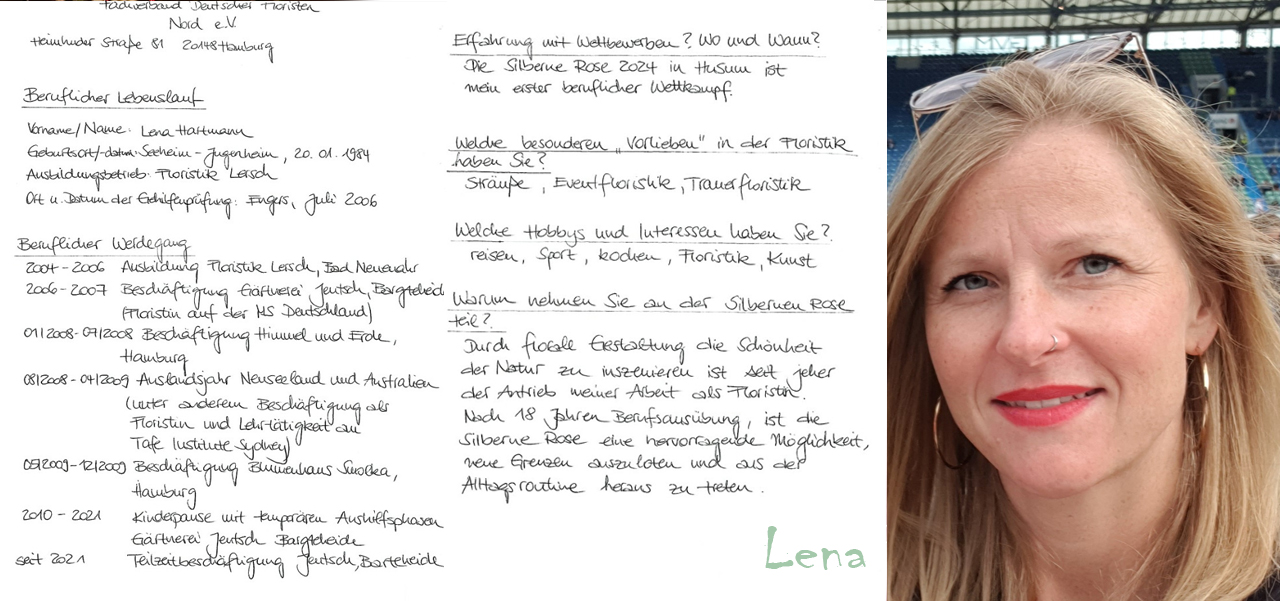 Fachverband Deutscher Floristen
Nord e.V.
Heimhuder Straße 81 20148 Hamburg
Beruflicher Lebenslauf
Vorname/Name: Lena Hartmann
Geburtsort/-datum: Seeheim-Jugenheim, 20.01.1984
Ausbildungsbetrieb: Floristik Lersch
Ort u. Datum der Gehilfenprüfung: Engers, Juli 2006
Beruflicher Werdegang
2004-2006 Ausbildung Floristik Lersch, Bad Neuenahr
2006-2007 Beschäftigung Gärtnerei Jeutsch, Bargteheide
(Floristin auf der MS Deutschland)
01/2008-07/2008 Beschäftigung Himmel und Erde,
Hamburg
08/2008-04/2009 Auslandsjahr Neuseeland und Australien
(unter anderem Beschäftigung als
Floristin und Lehrtätigkeit am
Tafe Institute Sydney)
05/2009-12/2009 Beschäftigung Blumenhaus
Hamburg
2010 - 2021 Kinderpause mit temporären Aushilfsphasen
Gärtnerei Jeutsch Bargteheide
seit 2021 Teilzeitbeschäftigung Jeutsch, Barteheide
Erfahrung mit Wettbewerben? Wo und Wann?
Die Silberne Rose 2024 in Husum ist
mein erster beruflicher Wettkampf.
Welche besonderen „Vorlieben" in der Floristik
haben Sie?
Sträuße, Eventfloristik, Trauerfloristik
Welche Hobbys und Interessen haben Sie?
reisen, Sport, kochen, Floristik, Kunst
Warum nehmen Sie an der Silbernen Rose
teil?
Durch florale Gestaltung die Schönheit
der Natur zu inszenieren ist seit jeher
der Antrieb meiner Arbeit als Floristin.
Nach 18 Jahren Berufsausübung, ist die
Silberne Rose eine hervorragende Möglichkeit,
neue Grenzen auszuloten und aus der
Alltagsroutine heraus zu treten.
Lena